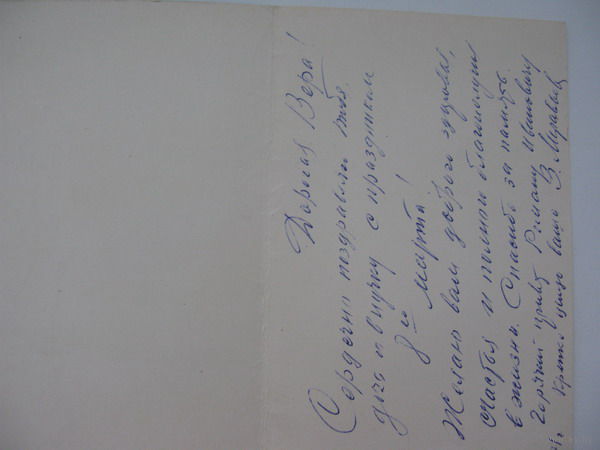 Дорогая Вера!
Сердечно поздравляю тебя
дочь и внучку с праздником
8 ое марта!
Желаю вам доброго здоровья,
счастья и полного благополучия
в жизни. Спасибо за память.
Горячий привет Роману Ивановичу
Крепко целую ваша З.